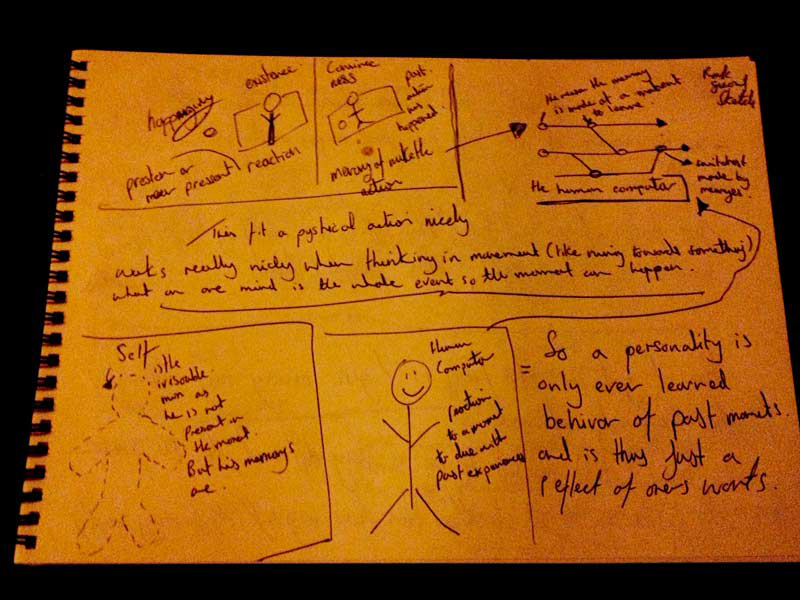 existence
past
action
just
happened.
reaction
memory of
action
The reason the memory
is made at a moment
to learn
Sketch
made by
The human computer
This fit a pyshical action nicely
works really nicely when thinking in movement (like runing towards something)
what on are mind is the whole event so the moment can happen.
Self
is the
invisable
man as
he is not
Present in
the moment.
But his memorys
are.
Human
Computer
reaction
to a moment
to due with
past experiences
= So a personality is
only ever learned
behivor of past moments.
and is thus just a
reflect of